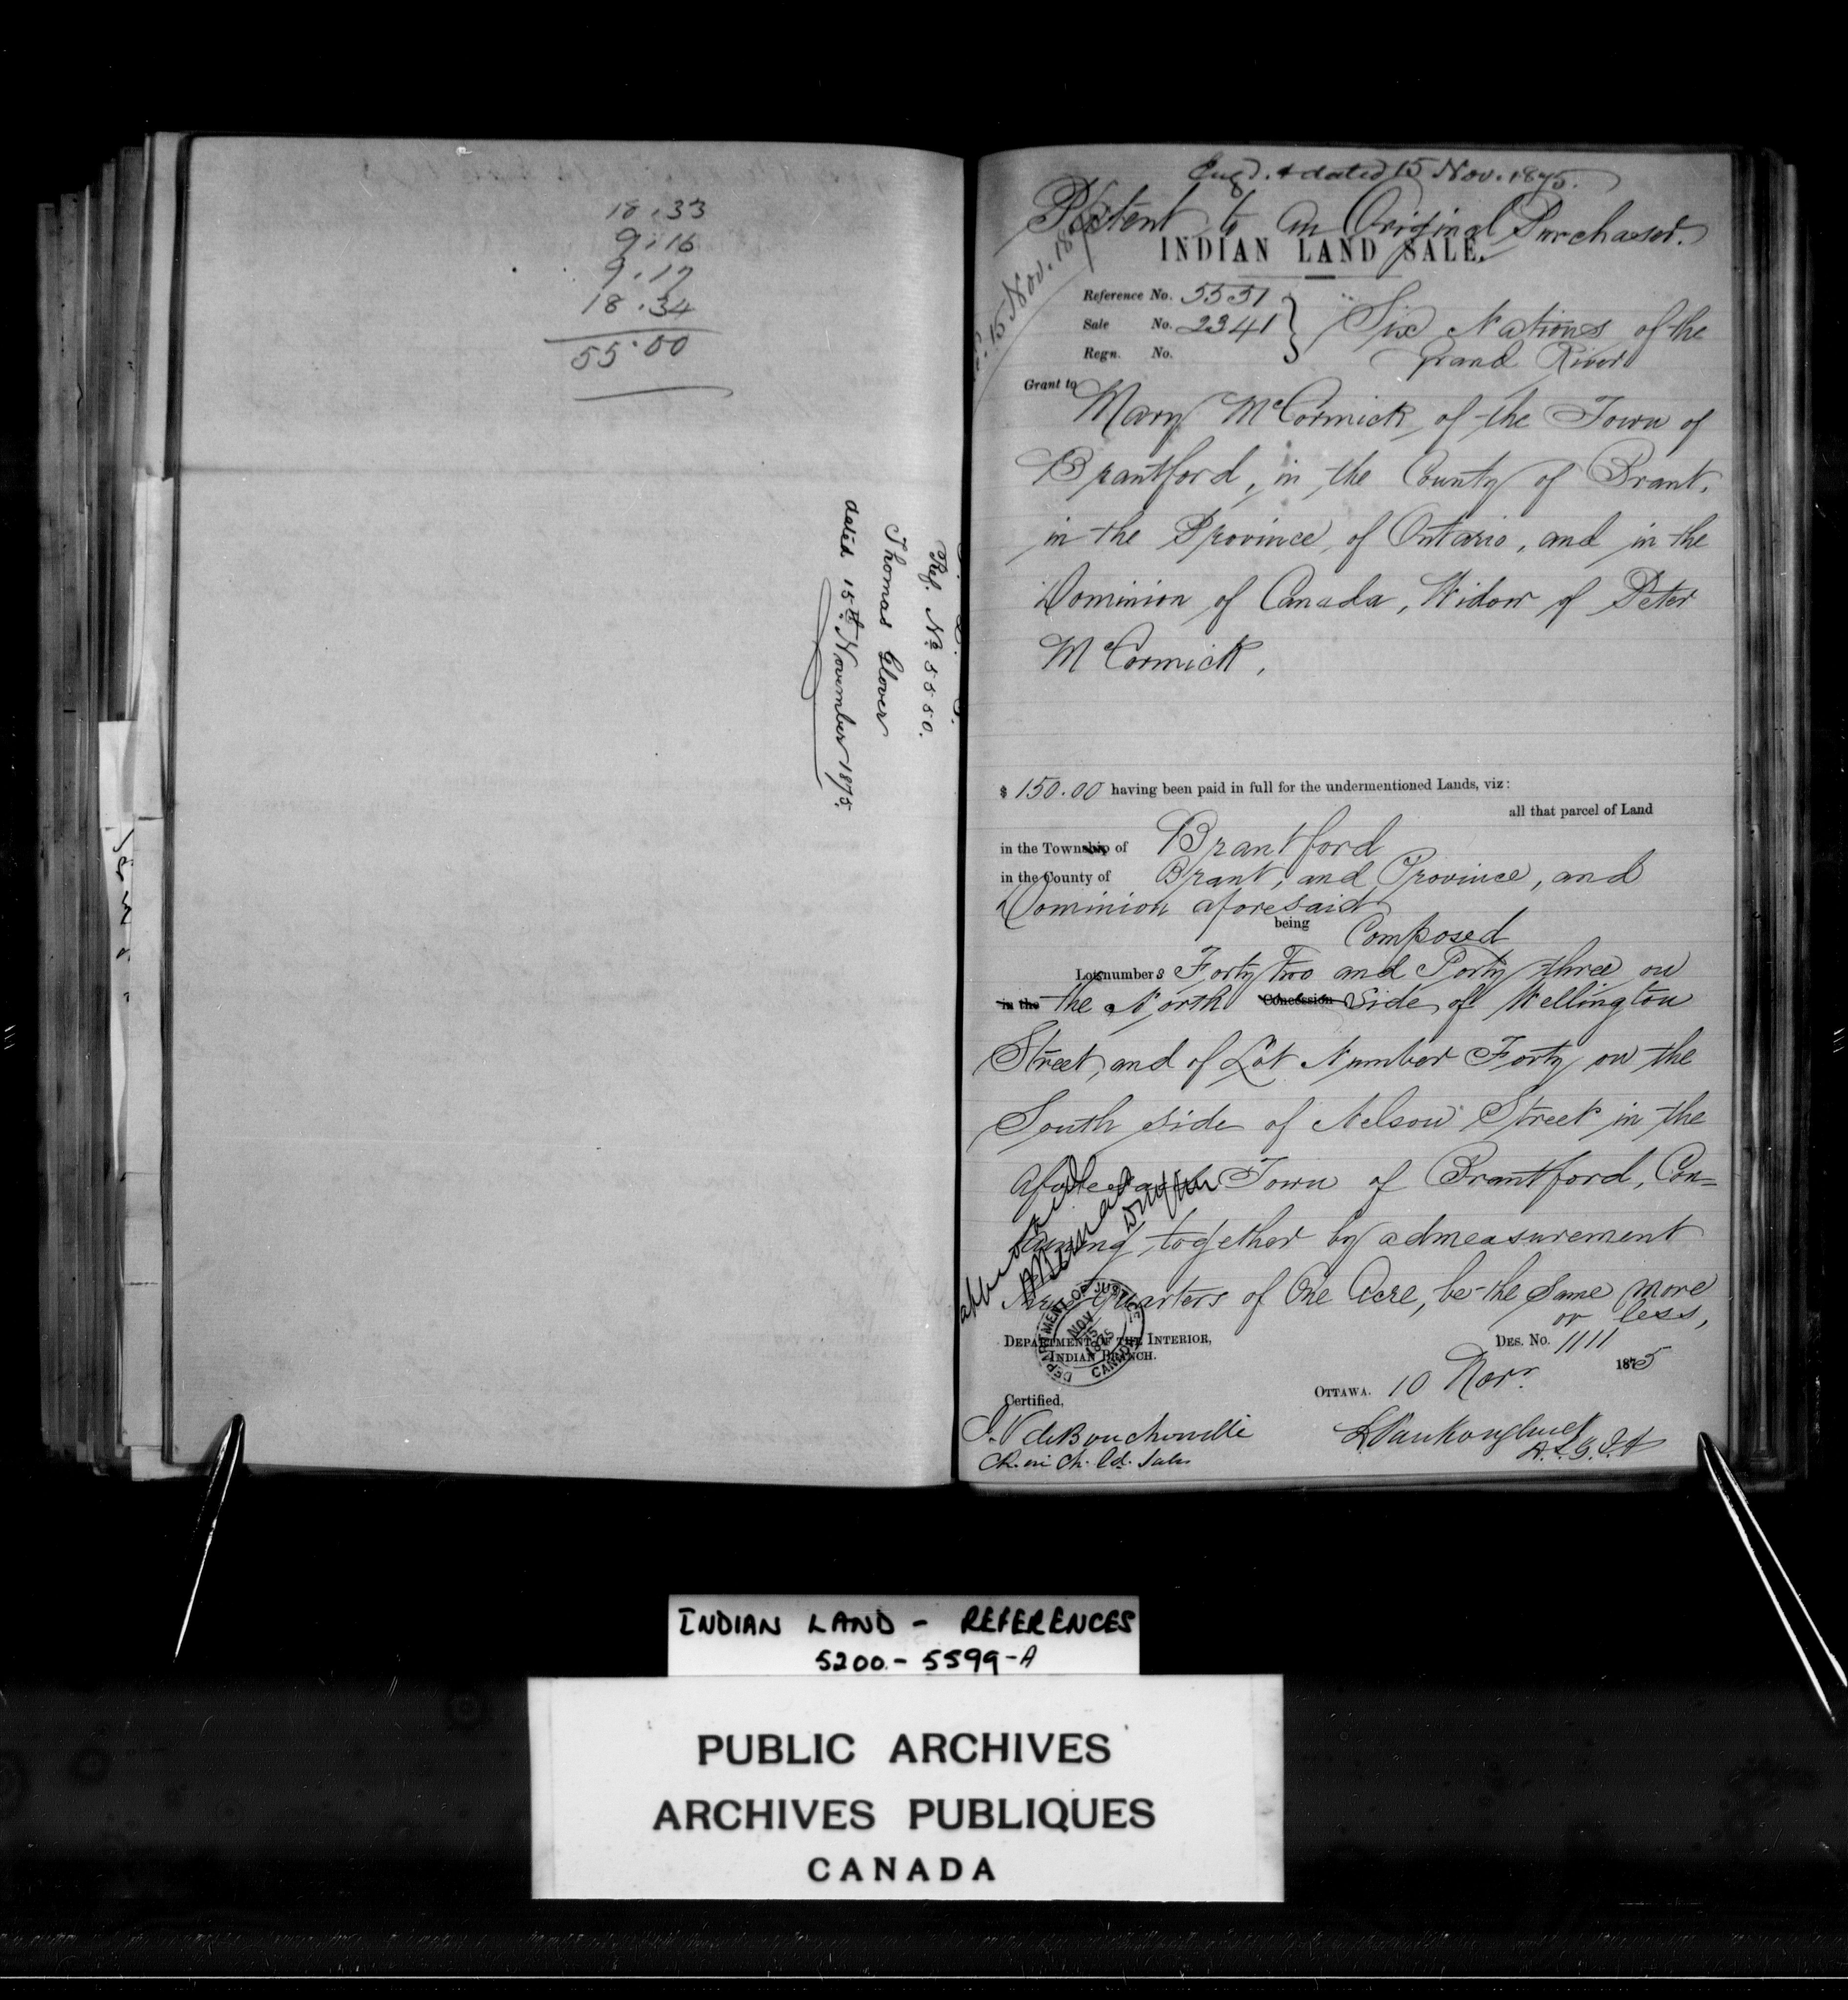 18.33
9.16
9.17
18.34
55.00
Ref. No 5550.
Thomas Glover
dated 15th November 1875.
Eng'd. & dated 15 Nov. 1875.
Patent to an Original Purchaser.
INDIAN LAND SALE.
15 Nov. 18
Reference No. 5551
Sale No. 2341
Regn. No.
Six Nations of the
Grand River
Grant to
Mary McCormick of the Town of
Brantford, in the County of Brant,
in the Province of Ontario, and in the
Dominion of Canada, Widow of Peter
McCormick,
$ 150.00 having been paid in full for the undermentioned Lands, viz:
all that parcel of Land
in the Township of Brantford
in the County of Brant, and Province, and
Dominion aforesaid
being Composed
Lots numbers Forty Two and Forty three on
in the the North Concession Side of Wellington
Street, and of Lot Number Forty on the
South side of Nelson Street in the
aforesaid Town of Brantford, Con=
taining together by admeasurement
Three quarters of One Acre, be the same more
or less,
DEPARTMENT OF JUSTICE
NOV
15
1875
CANADA
DEPARTMENT OF THE INTERIOR,
INDIAN BRANCH.
Des. No. 1111
OTTAWA. 10 Novr. 1875
Certified,
J. V. deBoucherville
Ck. in Ch. Ld. Sales
L Vankoughnet
D.S.G.I.A
INDIAN LAND - REFERENCES
5200 - 5599-A
PUBLIC ARCHIVES
ARCHIVES PUBLIQUES
CANADA